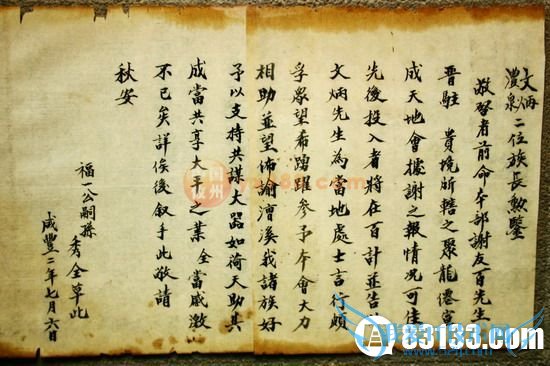 文炳
濃泉
二位族長勲鑒
敬啓者前命本部謝友百先生
晋駐 貴境所轄之聚龍僊宮
成天地會據謝之報情况可佳
先後投入者將在百計並告
文炳先生為當地處士言行頗
孚衆望希踴躍參予本會大力
相助並望佈諭漕溪我諸族好
予以支持共謀大器如荷天助其
成當共享大平之業全當感激
不已矣詳俟後叙手此敬請
秋安
福一公嗣孫 秀全草此
咸豐二年七月六日
83183.com